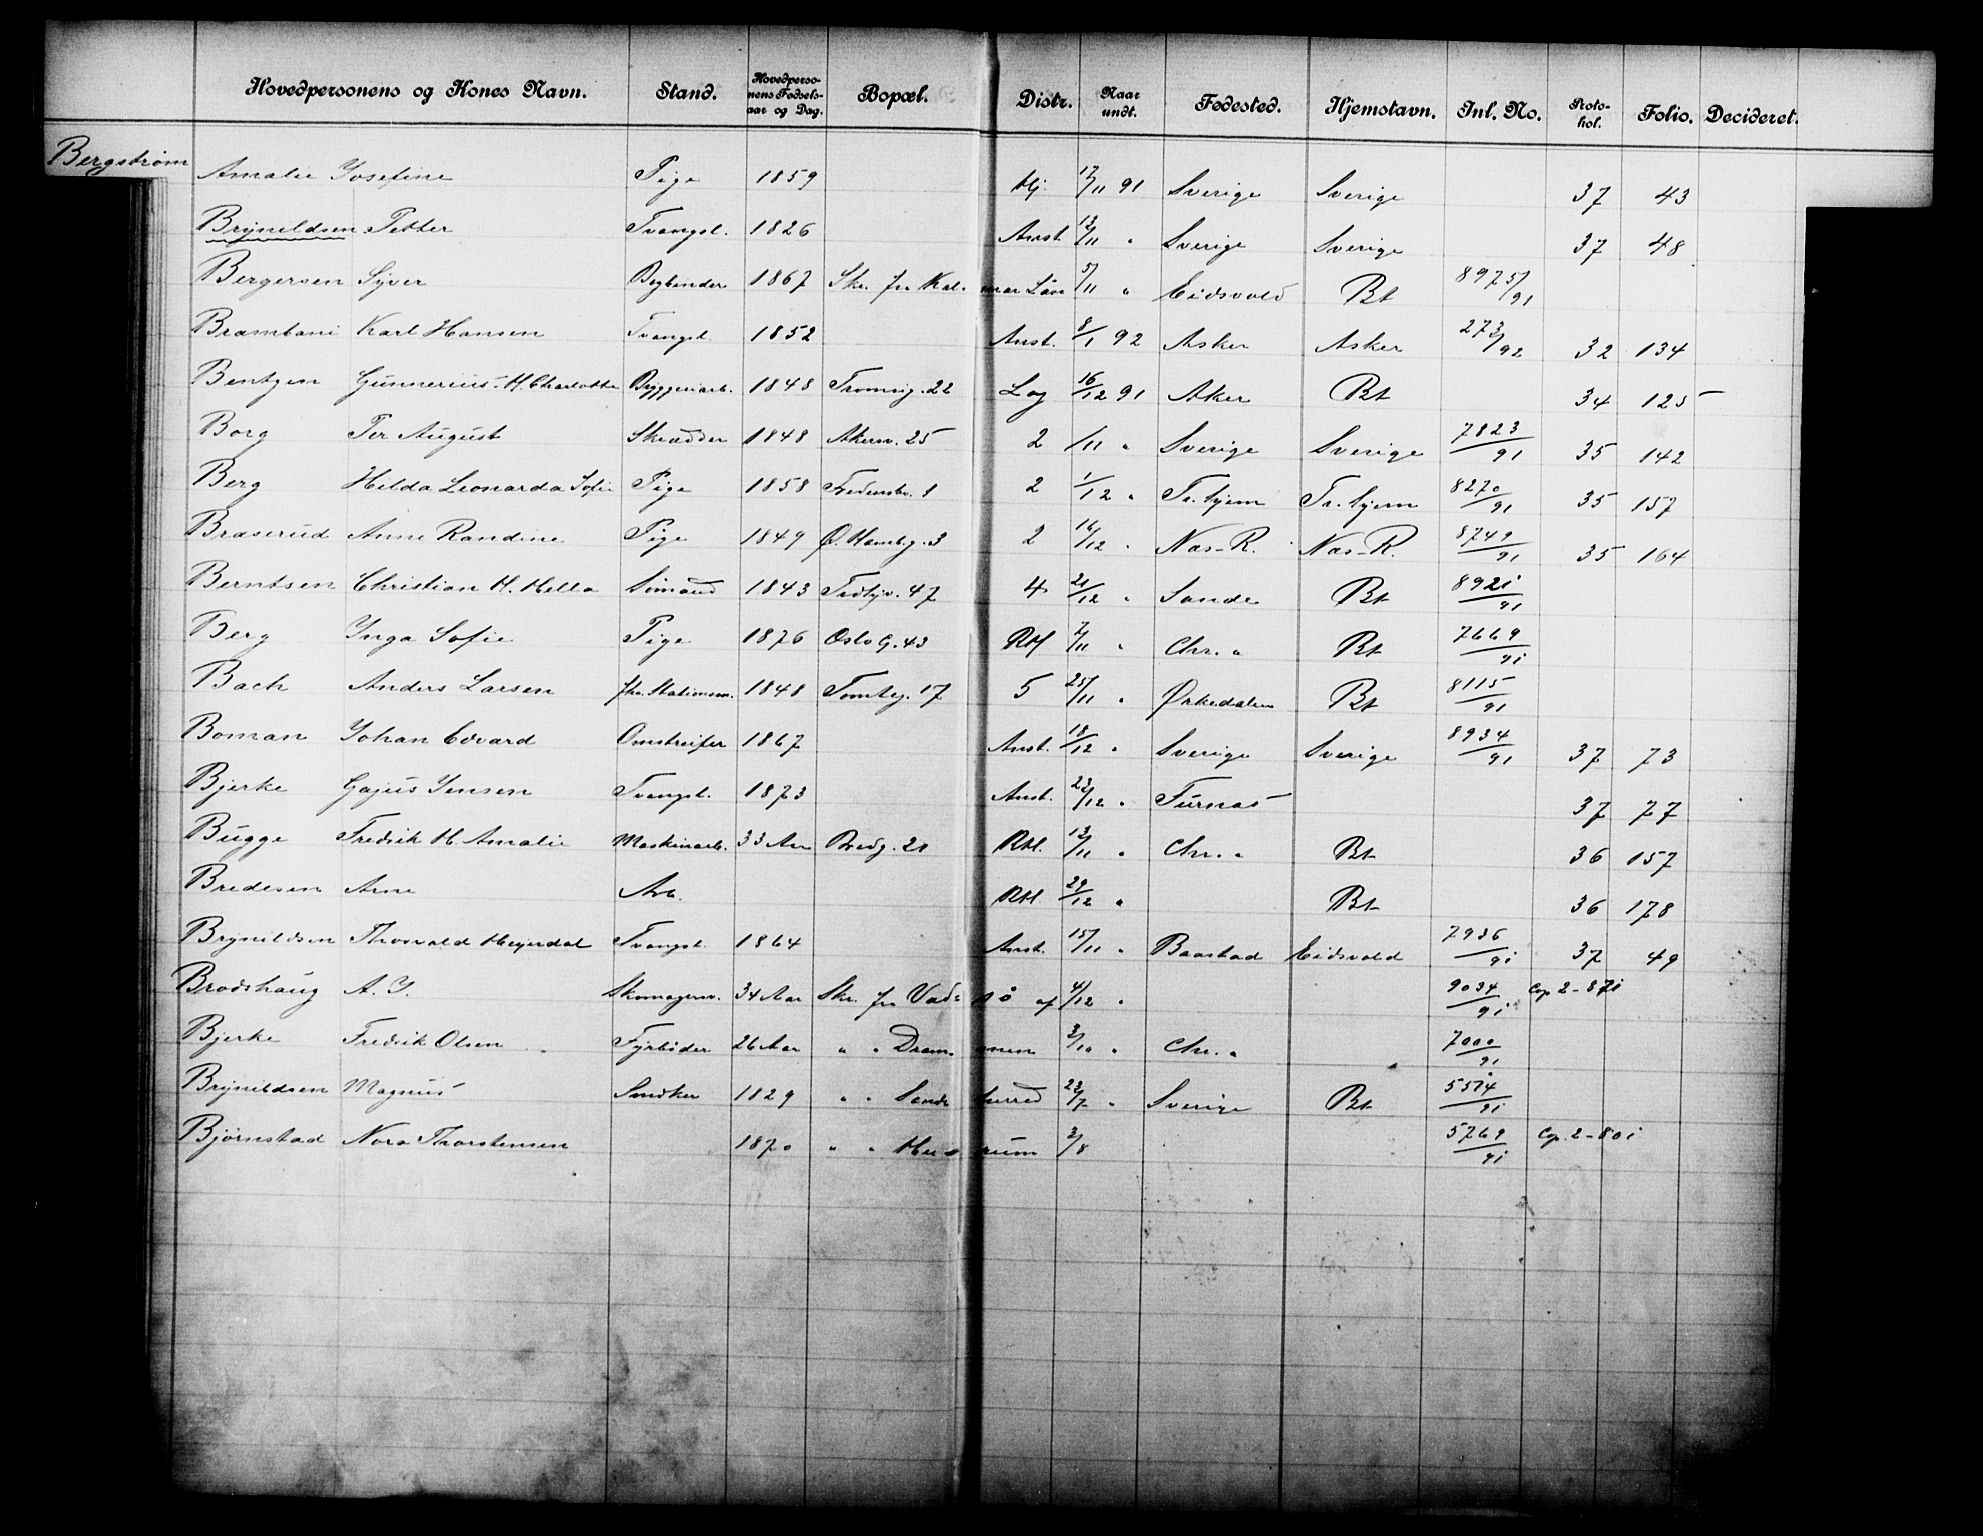 Hovedpersonens og Kones Navn. Stand. Hovedpersonens Fødselsaar og Dag. Bopæl. Distr. Naar undt. Fødested. Hjemstavn. Inl. No. Protokol. Folio. Decideret.
Bergstrøm Amalie Josefine Pige 1859 Hj. 17/11 91 Sverige Sverige 37 43
Brynildsen Petter Tvangsl. 1826 Anst. 12/11 " Sverige Sverige 37 48
Bergersen Syver Bogbinder 1867 Skr. fra Kalmar Län 5/11 " Eidsvold Bt 8975/91
Brambani Karl Hansen Tvangsl. 1852 Anst. 8/1 92 Asker Asker 273/92 32 134
Bentzen Gunnerius - H. Charlotte Bryggeriarb. 1848 Tromsøg. 22 Log 16/12 91 Aker Bt 34 125
Borg Per August Skrædder 1848 Akersv. 25 2 /11 " Sverige Sverige 7823/91 35 142
Berg Hilda Leonarda Sofie Pige 1858 Fredensbv. 1 2 1/12 " Tr.hjem Tr.hjem 8270/91 35 157
Braserud Anne Randine Pige 1849 Ø. Hambg. 3 2 16/12 " Næs-R. Næs-R. 8749/91 35 164
Berntsen Christian H. Hella Sømand 1843 Trdhjv. 47 4 21/12 " Sande Bt 8921/91
Berg Inga Sofie Pige 1876 Oslo G. 43 Rtl /11 " Chr. a Bt 7669/91
Bach Anders Larsen fhv. Stationsm. 1848 Tomteg. 17 5 25/11 " Ørkedalen Bt 8115/91
Boman Johan Edvard Omstreifer 1867 Anst. 18/12 " Sverige Sverige 8934/91 37 73
Bjerke Gajus Jensen Tvangsl. 1873 Anst. 22/12 " Furnæs 37 77
Bugge Fredrik H. Amalie Maskinarb. 33 Aar Bredg. 21 Rtl. 13/11 " Chr. a Bt 36 157
Bredesen Arne Arb. Rtl 29/12 " Bt 36 178
Brynildsen Thorvald Heyerdal Tvangsl. 1864 Anst. 15/11 " Baastad Eidsvold 7936/91 37 49
Brodshaug A. J. Skomagersv. 34 Aar Skr. fra Vadsø af 4/12 " 9034/91 Cop. 2-871
Bjerke Fredrik Olsen Fyrbøder 26 Aar " " Drammen 3/10 " Chr. a 7000/91
Brynildsen Magnus Snedker 1829 " " Sandeherred 23/7 " Sverige Bt 5574/91
Bjørnstad Nora Thorstensen 1870 " " Hurum 3/8 5769/91 Cop. 2-801